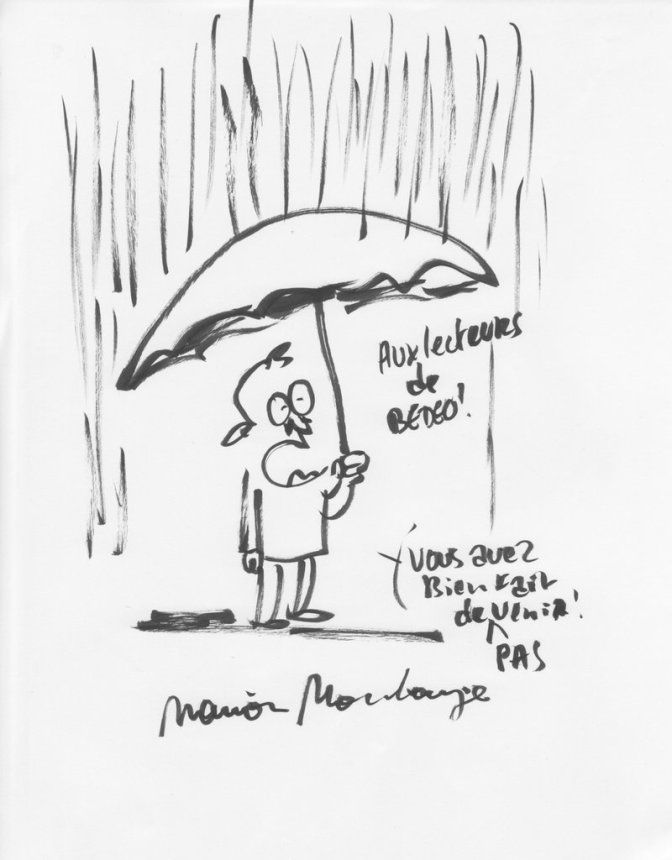 Aux lecteurs
de
BEDEO!
Vous avez
Bien fait
de venir!
PAS
Marion Montaigne